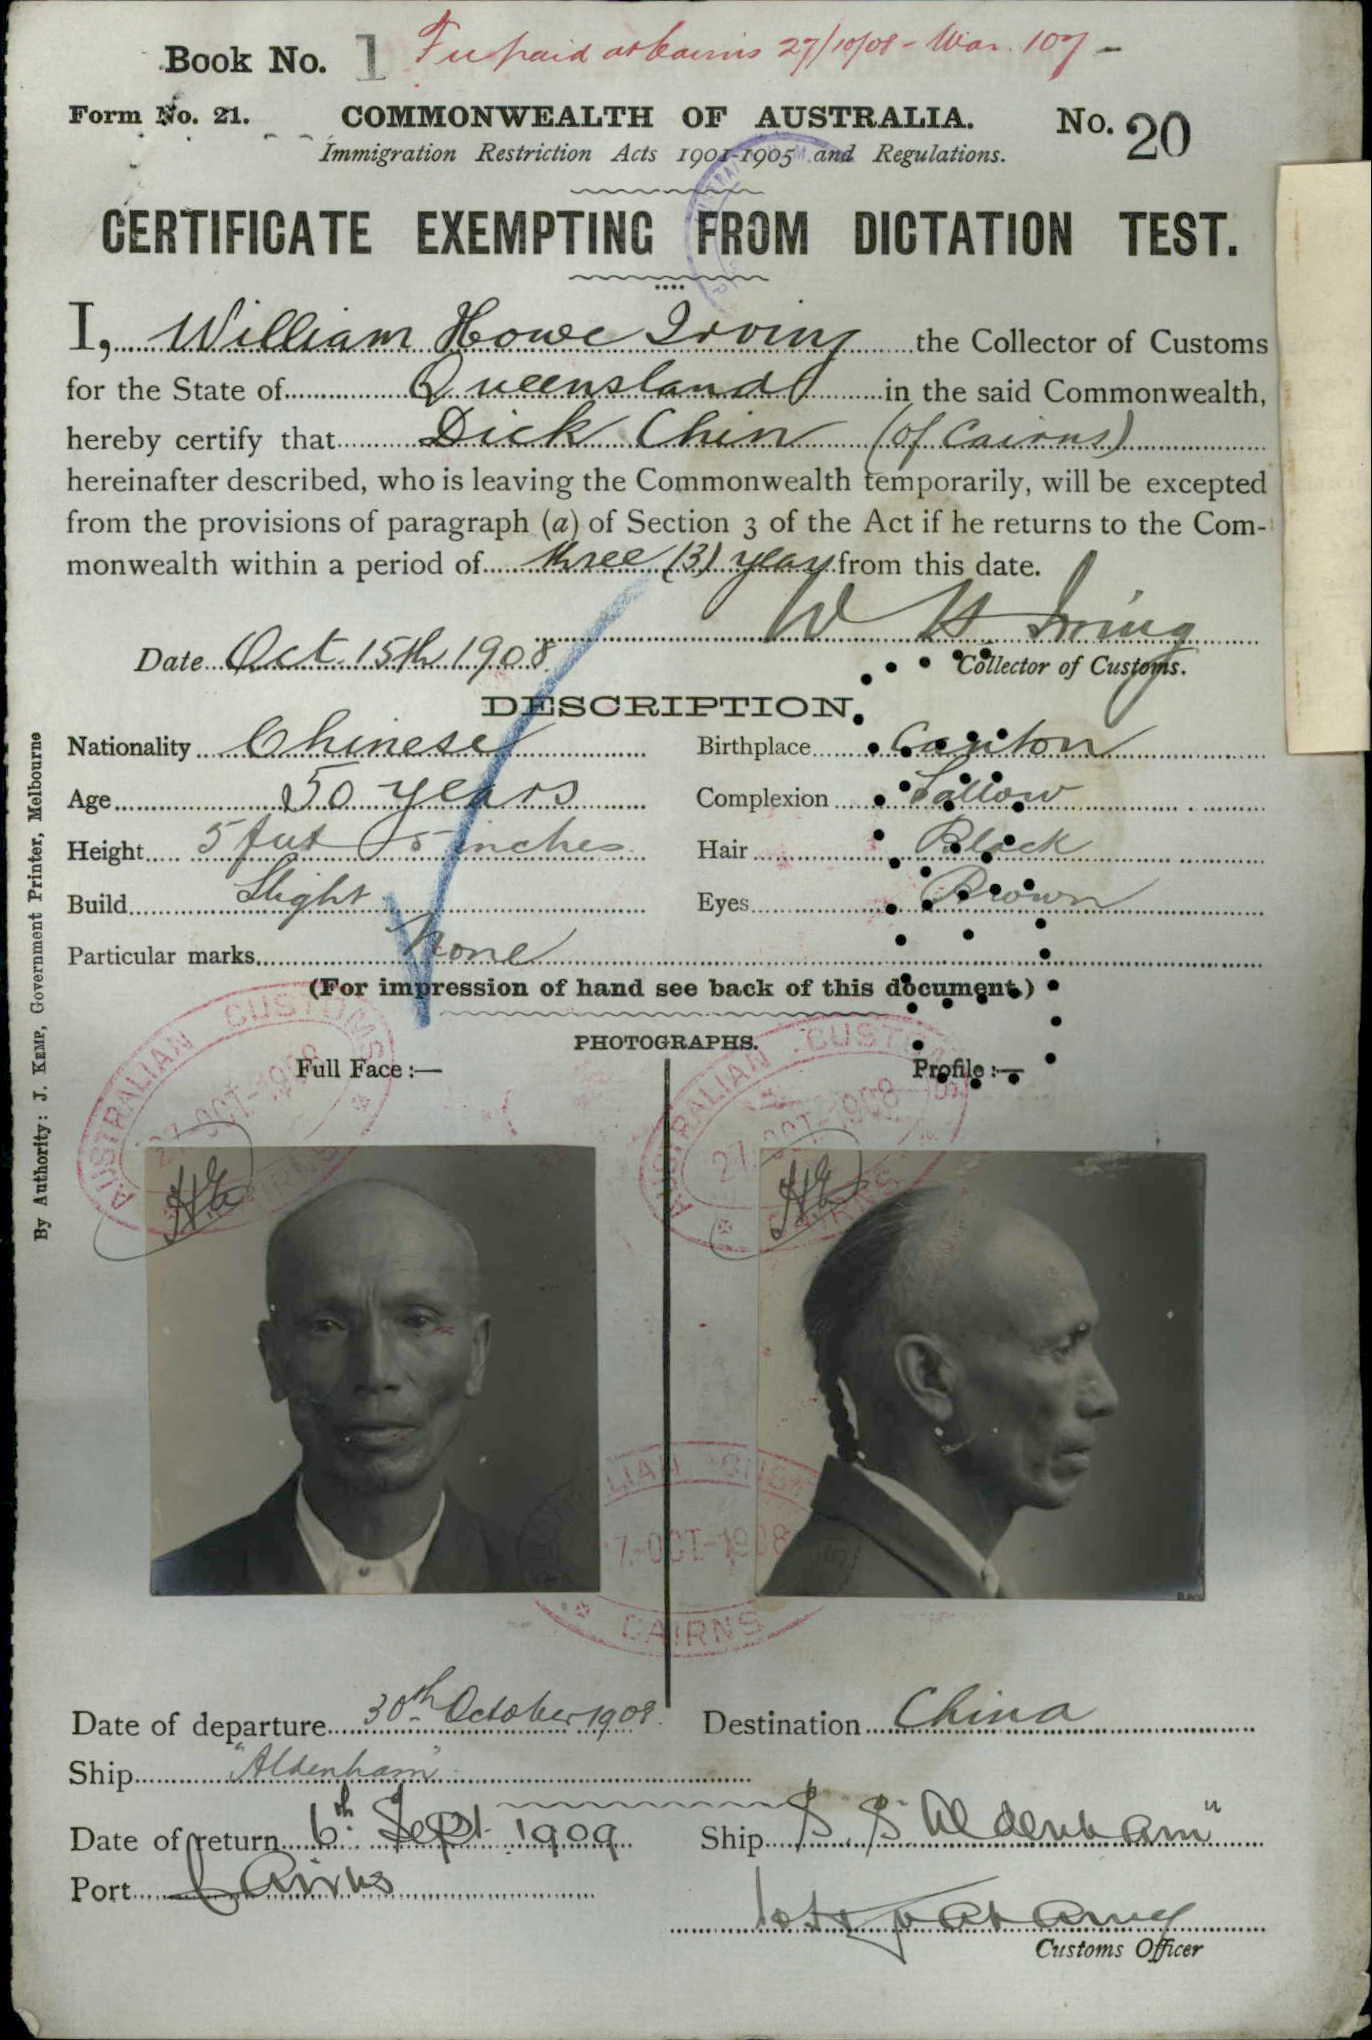 Book No. 1 paid at Cairns 27/10/08 - War. 107 -
Form No. 21. COMMONWEALTH OF AUSTRALIA. No. 20
Immigration Restriction Acts 1901-1905 and Regulations.
CERTIFICATE EXEMPTING FROM DICTATION TEST.
I, William Howe Irving the Collector of Customs
for the State of Queensland in the said Commonwealth,
hereby certify that Dick Chin (of Cairns)
hereinafter described, who is leaving the Commonwealth temporarily, will be excepted
from the provisions of paragraph (a) of Section 3 of the Act if he returns to the Com-
monwealth within a period of three (3) years from this date.
W H Irving
Date Oct. 15th 1908 Collector of Customs.
DESCRIPTION.
Nationality Chinese Birthplace Canton
Age 50 years Complexion Sallow
Height 5 feet 5 inches Hair Black
Build Slight Eyes Brown
Particular marks None
(For impression of hand see back of this document.)
PHOTOGRAPHS.
Full Face :— Profile :—
AUSTRALIAN CUSTOMS
27-OCT-1908
CAIRNS
AUSTRALIAN CUSTOMS
27-OCT-1908
CAIRNS
7-OCT-1908
CAIRNS
Date of departure 30th October 1908. Destination China
Ship "Aldenham"
Date of return 6th Sept 1909 Ship S. S "Aldenham"
Port Cairns
Customs Officer
By Authority: J. KEMP, Government Printer, Melbourne